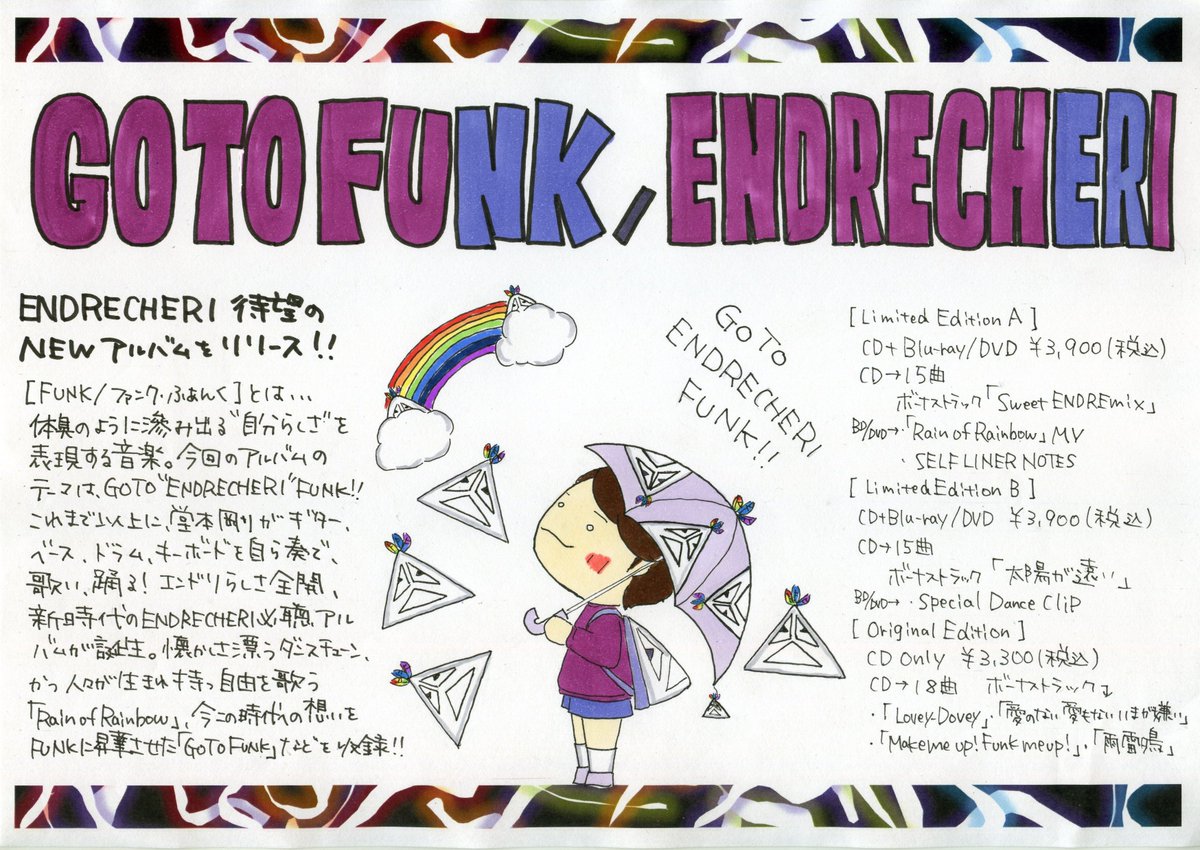 GO TO FUNK / ENDRECHERI
ENDRECHERI 待望の
NEW アルバムをリリース!!
[FUNK/ファンク・ふぁんく]とは...
体臭のように滲み出る"自分らしさ"を
表現する音楽。今回のアルバムの
テーマは、GO TO "ENDRECHERI" FUNK!!
これまで以上に、堂本剛がギター、
ベース、ドラム、キーボードを自ら奏で、
歌い、踊る! エンドリらしさ全開、
新時代のENDRECHERI必聴、アル
バムが誕生。懐かしさ漂うダンスチューン、
かつ人々が生まれ持つ自由を歌う
「Rain of Rainbow」、今この時代への想いを
FUNKに昇華させた「GO TO FUNK」などを収録!!
GO TO
ENDRECHERI
FUNK!!
[Limited Edition A]
CD+Blu-ray/DVD ¥3,900(税込)
CD→15曲
ボーナストラック「Sweet ENDREmix」
BD/DVD→・「Rain of Rainbow」MV
・SELF LINER NOTES
[Limited Edition B]
CD+Blu-ray/DVD ¥3,900(税込)
CD→15曲
ボーナストラック「太陽が遠い」
BD/DVD→・Special Dance Clip
[Original Edition]
CD Only ¥3,300(税込)
CD→18曲 ボーナストラック↓
・「Lovey-Dovey」・「愛のない 愛もない いまが嫌い」
・「Make me up! Funk me up!」・「雨雷鳴」